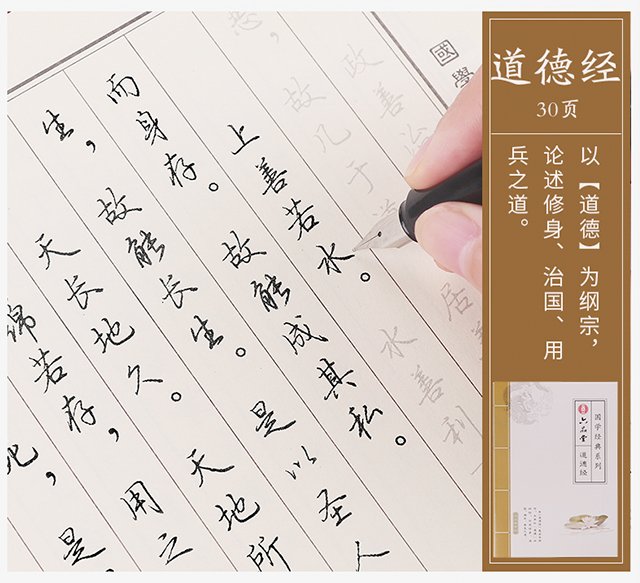 國學
政善治
恶，故几于道
居善
上善若水。水善利
而身存。故能成其私。
生，故能长生。是以圣人
天长地久。天地所
绵若存，用之
是
道德经
30页
以【道德】为纲宗，
论述修身、治国、用
兵之道。
国学经典系列
六品堂
道德经